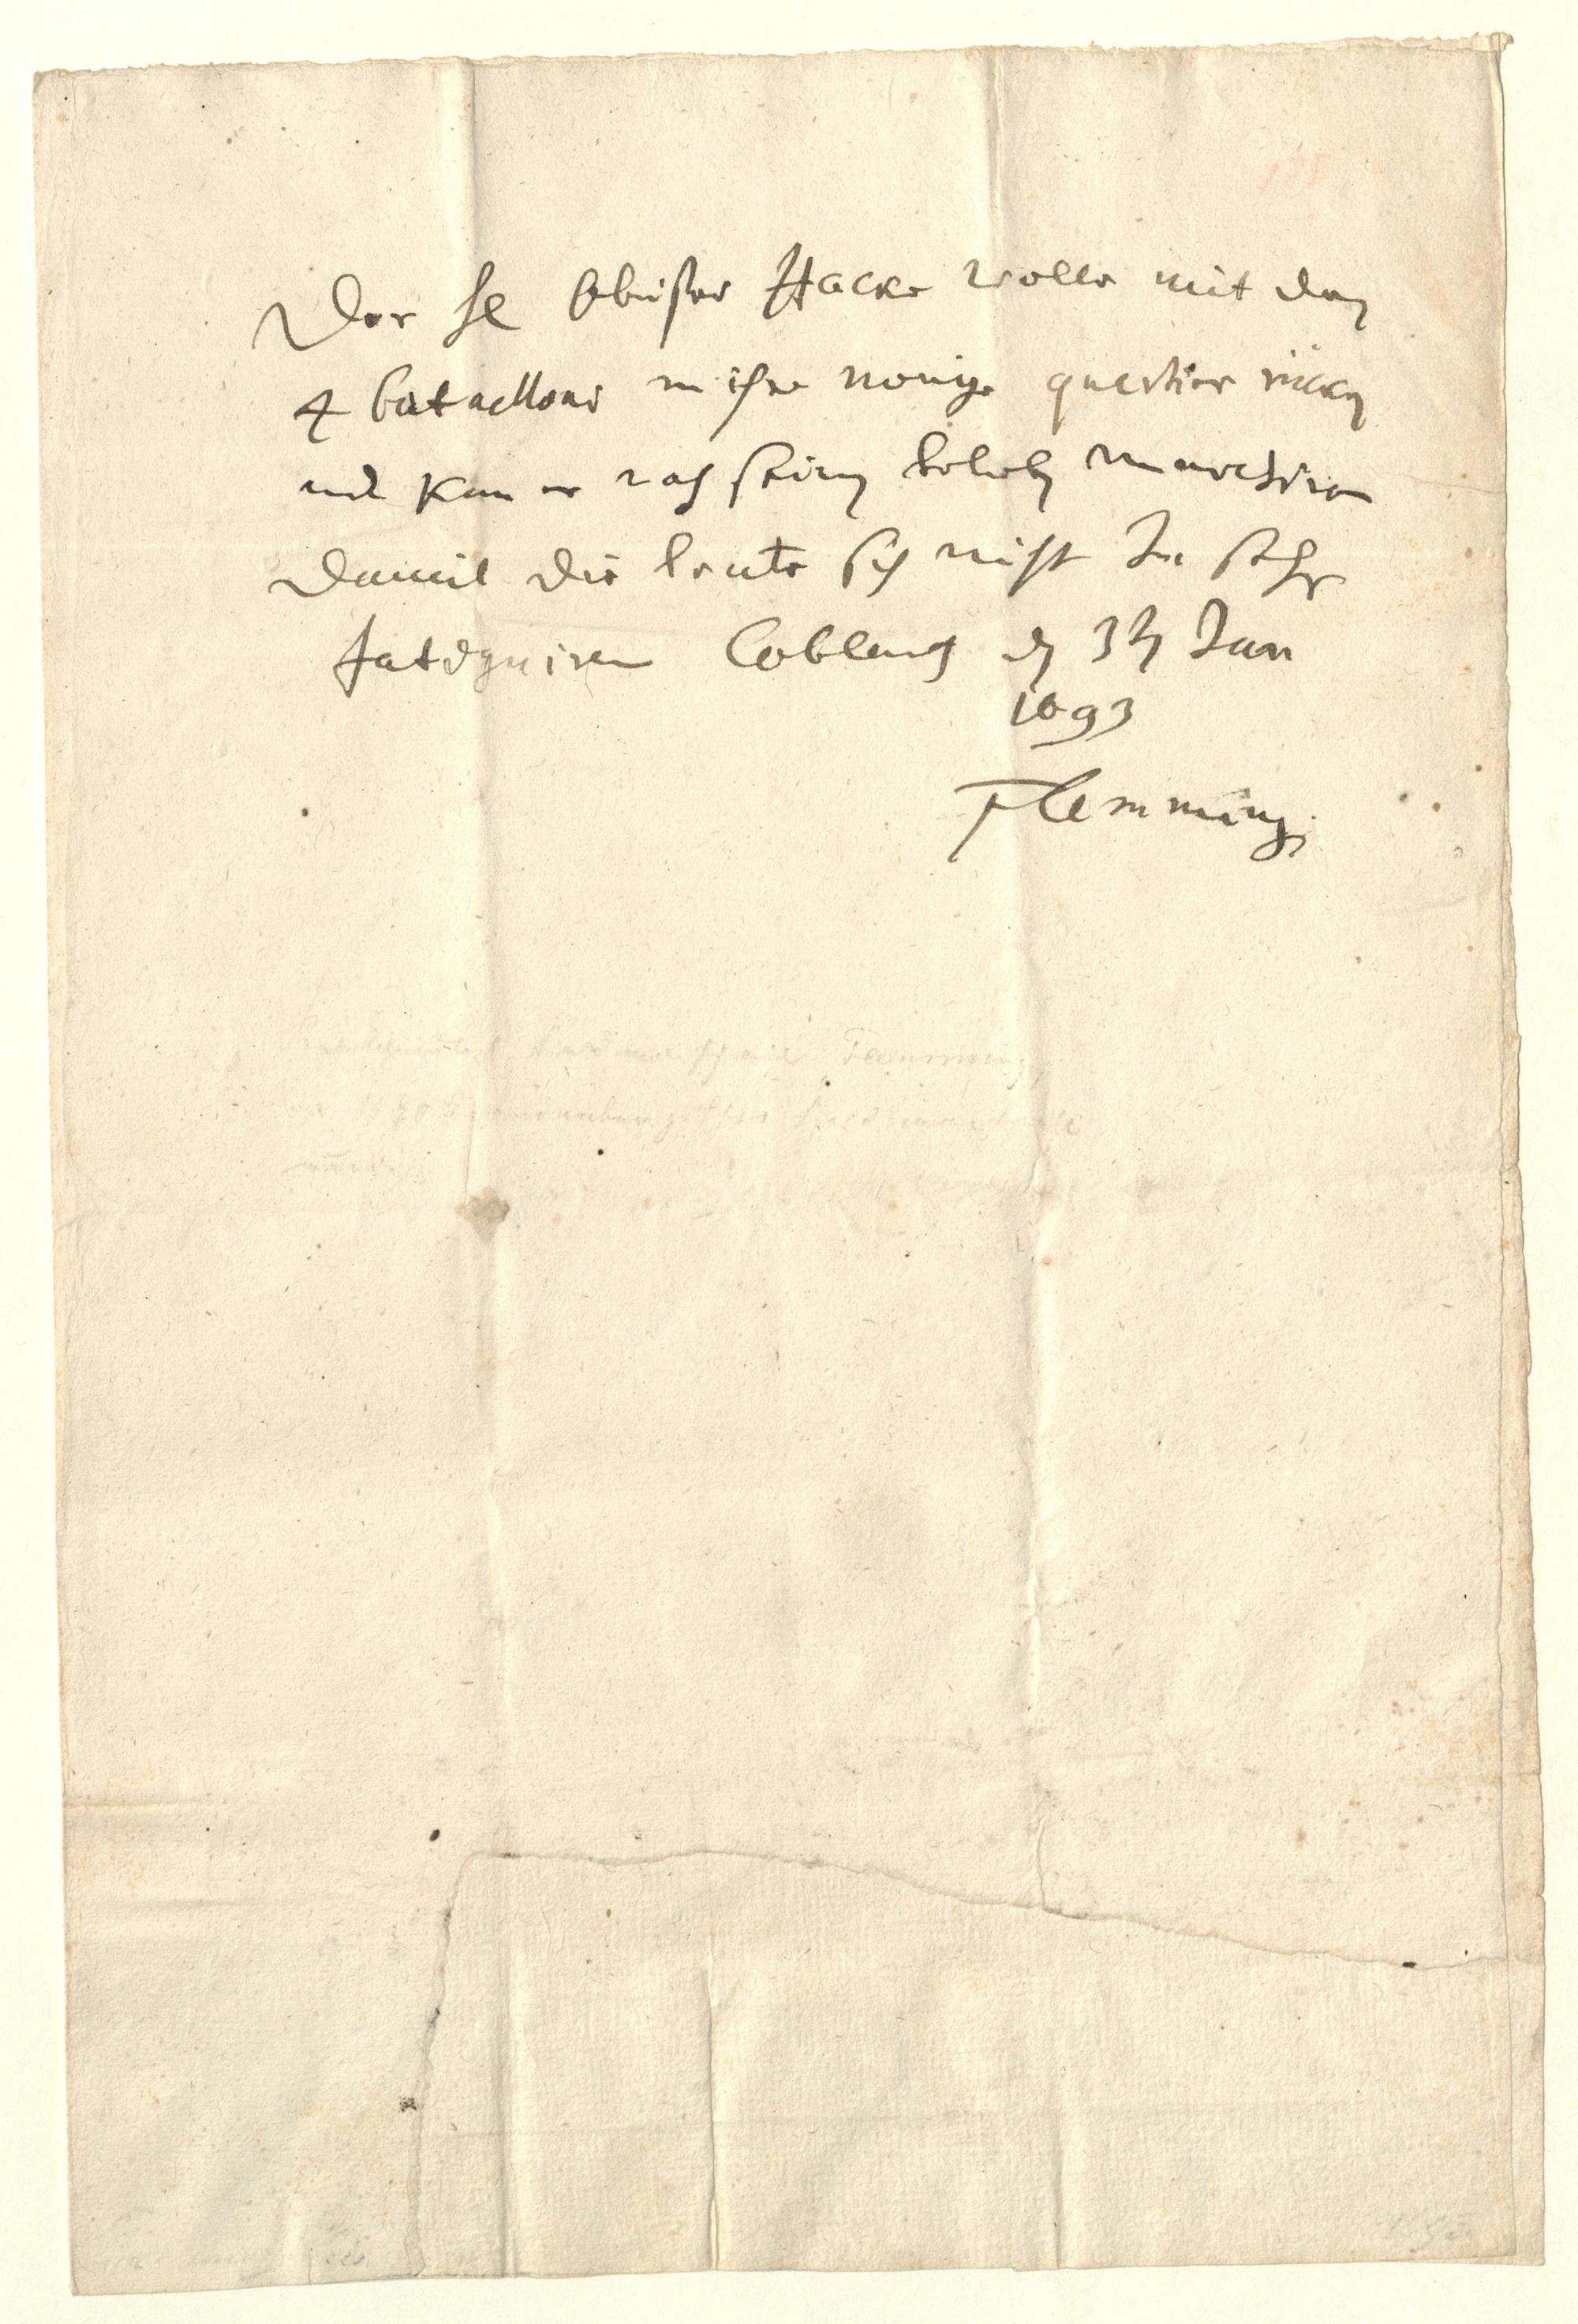 Der H Obrister Hacke wolle mit den
4 batallons in ihre vorige quartier rücken
und kan er nach seinen belieben marchiren
damit die leute sich nicht zu sehr
fatigviren Coblentz d 3 Jan
1693
Flemming
Flemming